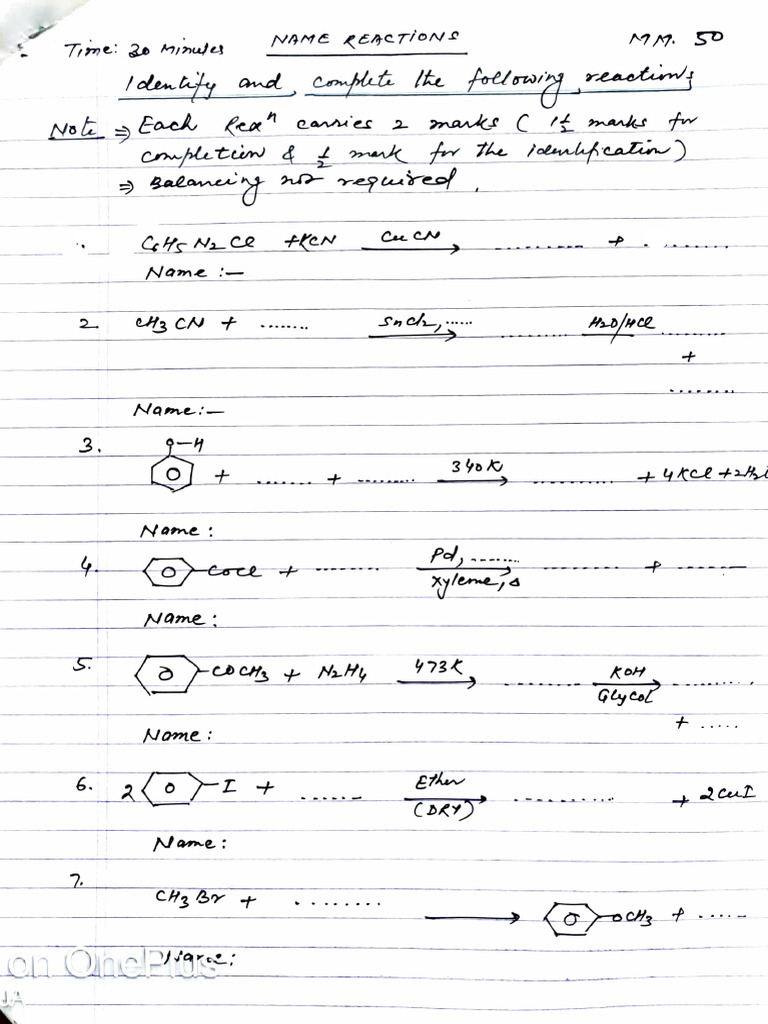 Time: 30 Minutes NAME REACTIONS MM. 50
Identify and complete the following reactions
Note ⇒ Each Reaⁿ carries 2 marks ( 1½ marks for
completion & ½ mark for the identification)
⇒ Balancing not required.
C6H5N2Cl + KCN CuCN ......... + . .......
Name :-
2. CH3CN + ........ SnCl2, ...... ......... H2O/HCl .........
+
.........
Name:-
3. O-H
+ ....... + ........ 340K ......... + 4KCl + 2H2
Name :
4. COCl + ......... Pd, ........ xylene, Δ ......... + .........
Name :
5. COCH3 + N2H4 473K ......... KOH Glycol .........
+ .....
Name :
6. 2 I + ...... Ether (DRY) ........... + 2CuI
Name :
7. CH3Br + ......... OCH3 + ......
Name:
on OnePlus